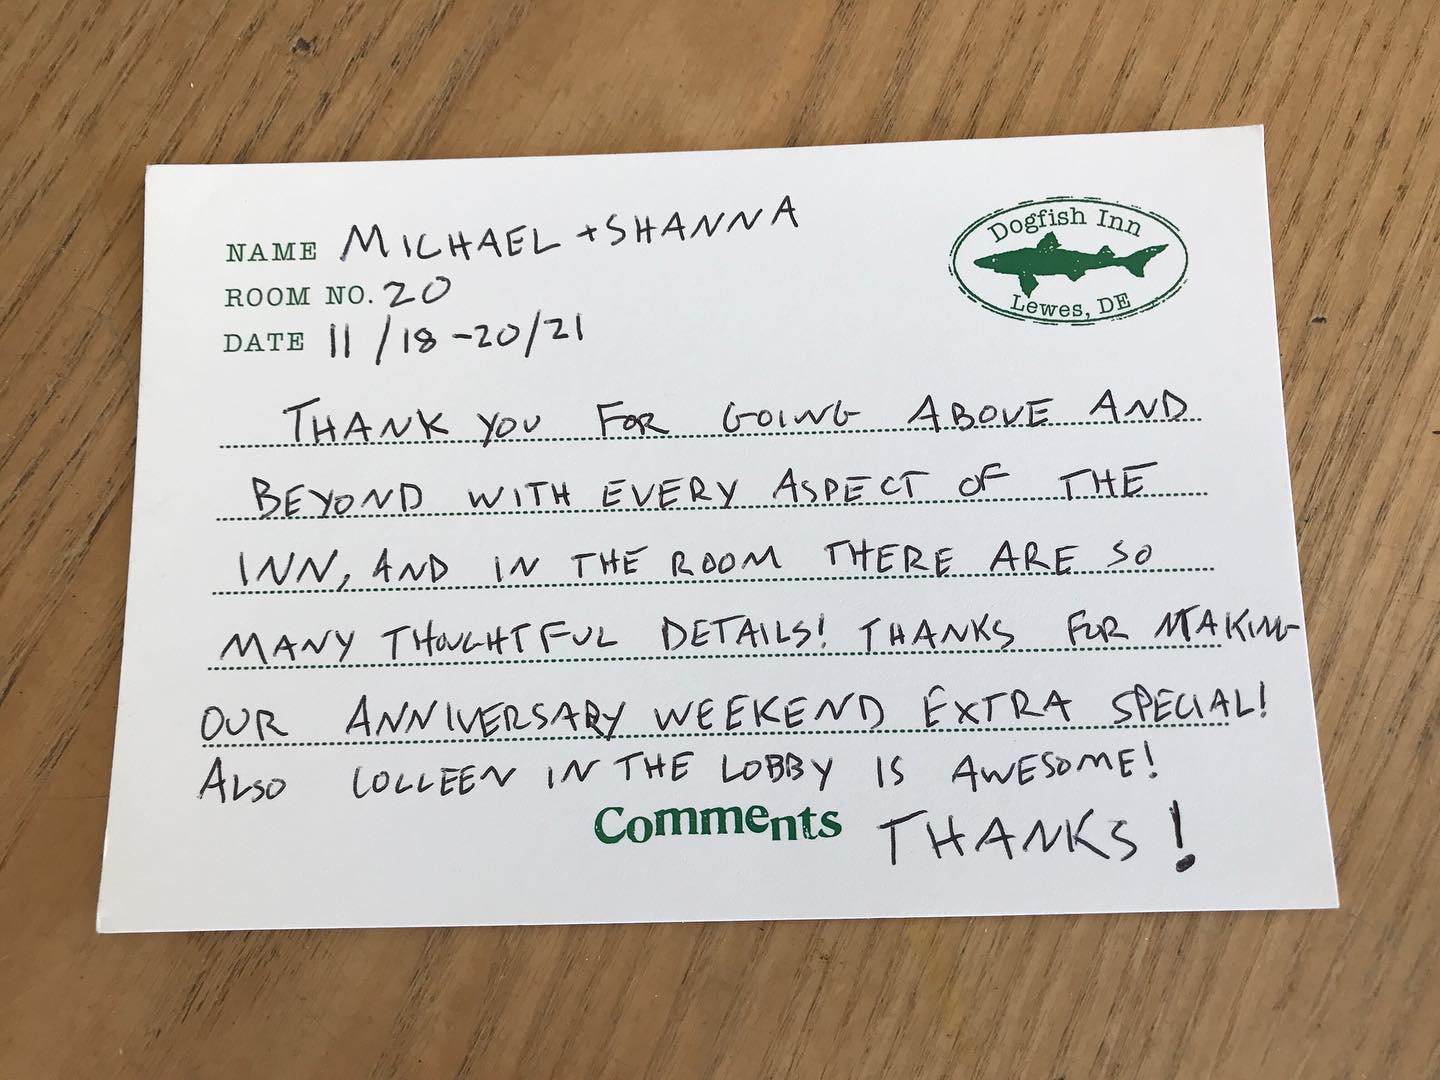 NAME MICHAEL + SHANNA
ROOM NO. 20
DATE 11/18-20/21
Dogfish Inn
Lewes, DE
THANK YOU FOR GOING ABOVE AND
BEYOND WITH EVERY ASPECT OF THE
INN, AND IN THE ROOM THERE ARE SO
MANY THOUGHTFUL DETAILS! THANKS FOR MAKING
OUR ANNIVERSARY WEEKEND EXTRA SPECIAL!
ALSO COLLEEN IN THE LOBBY IS AWESOME!
Comments THANKS!